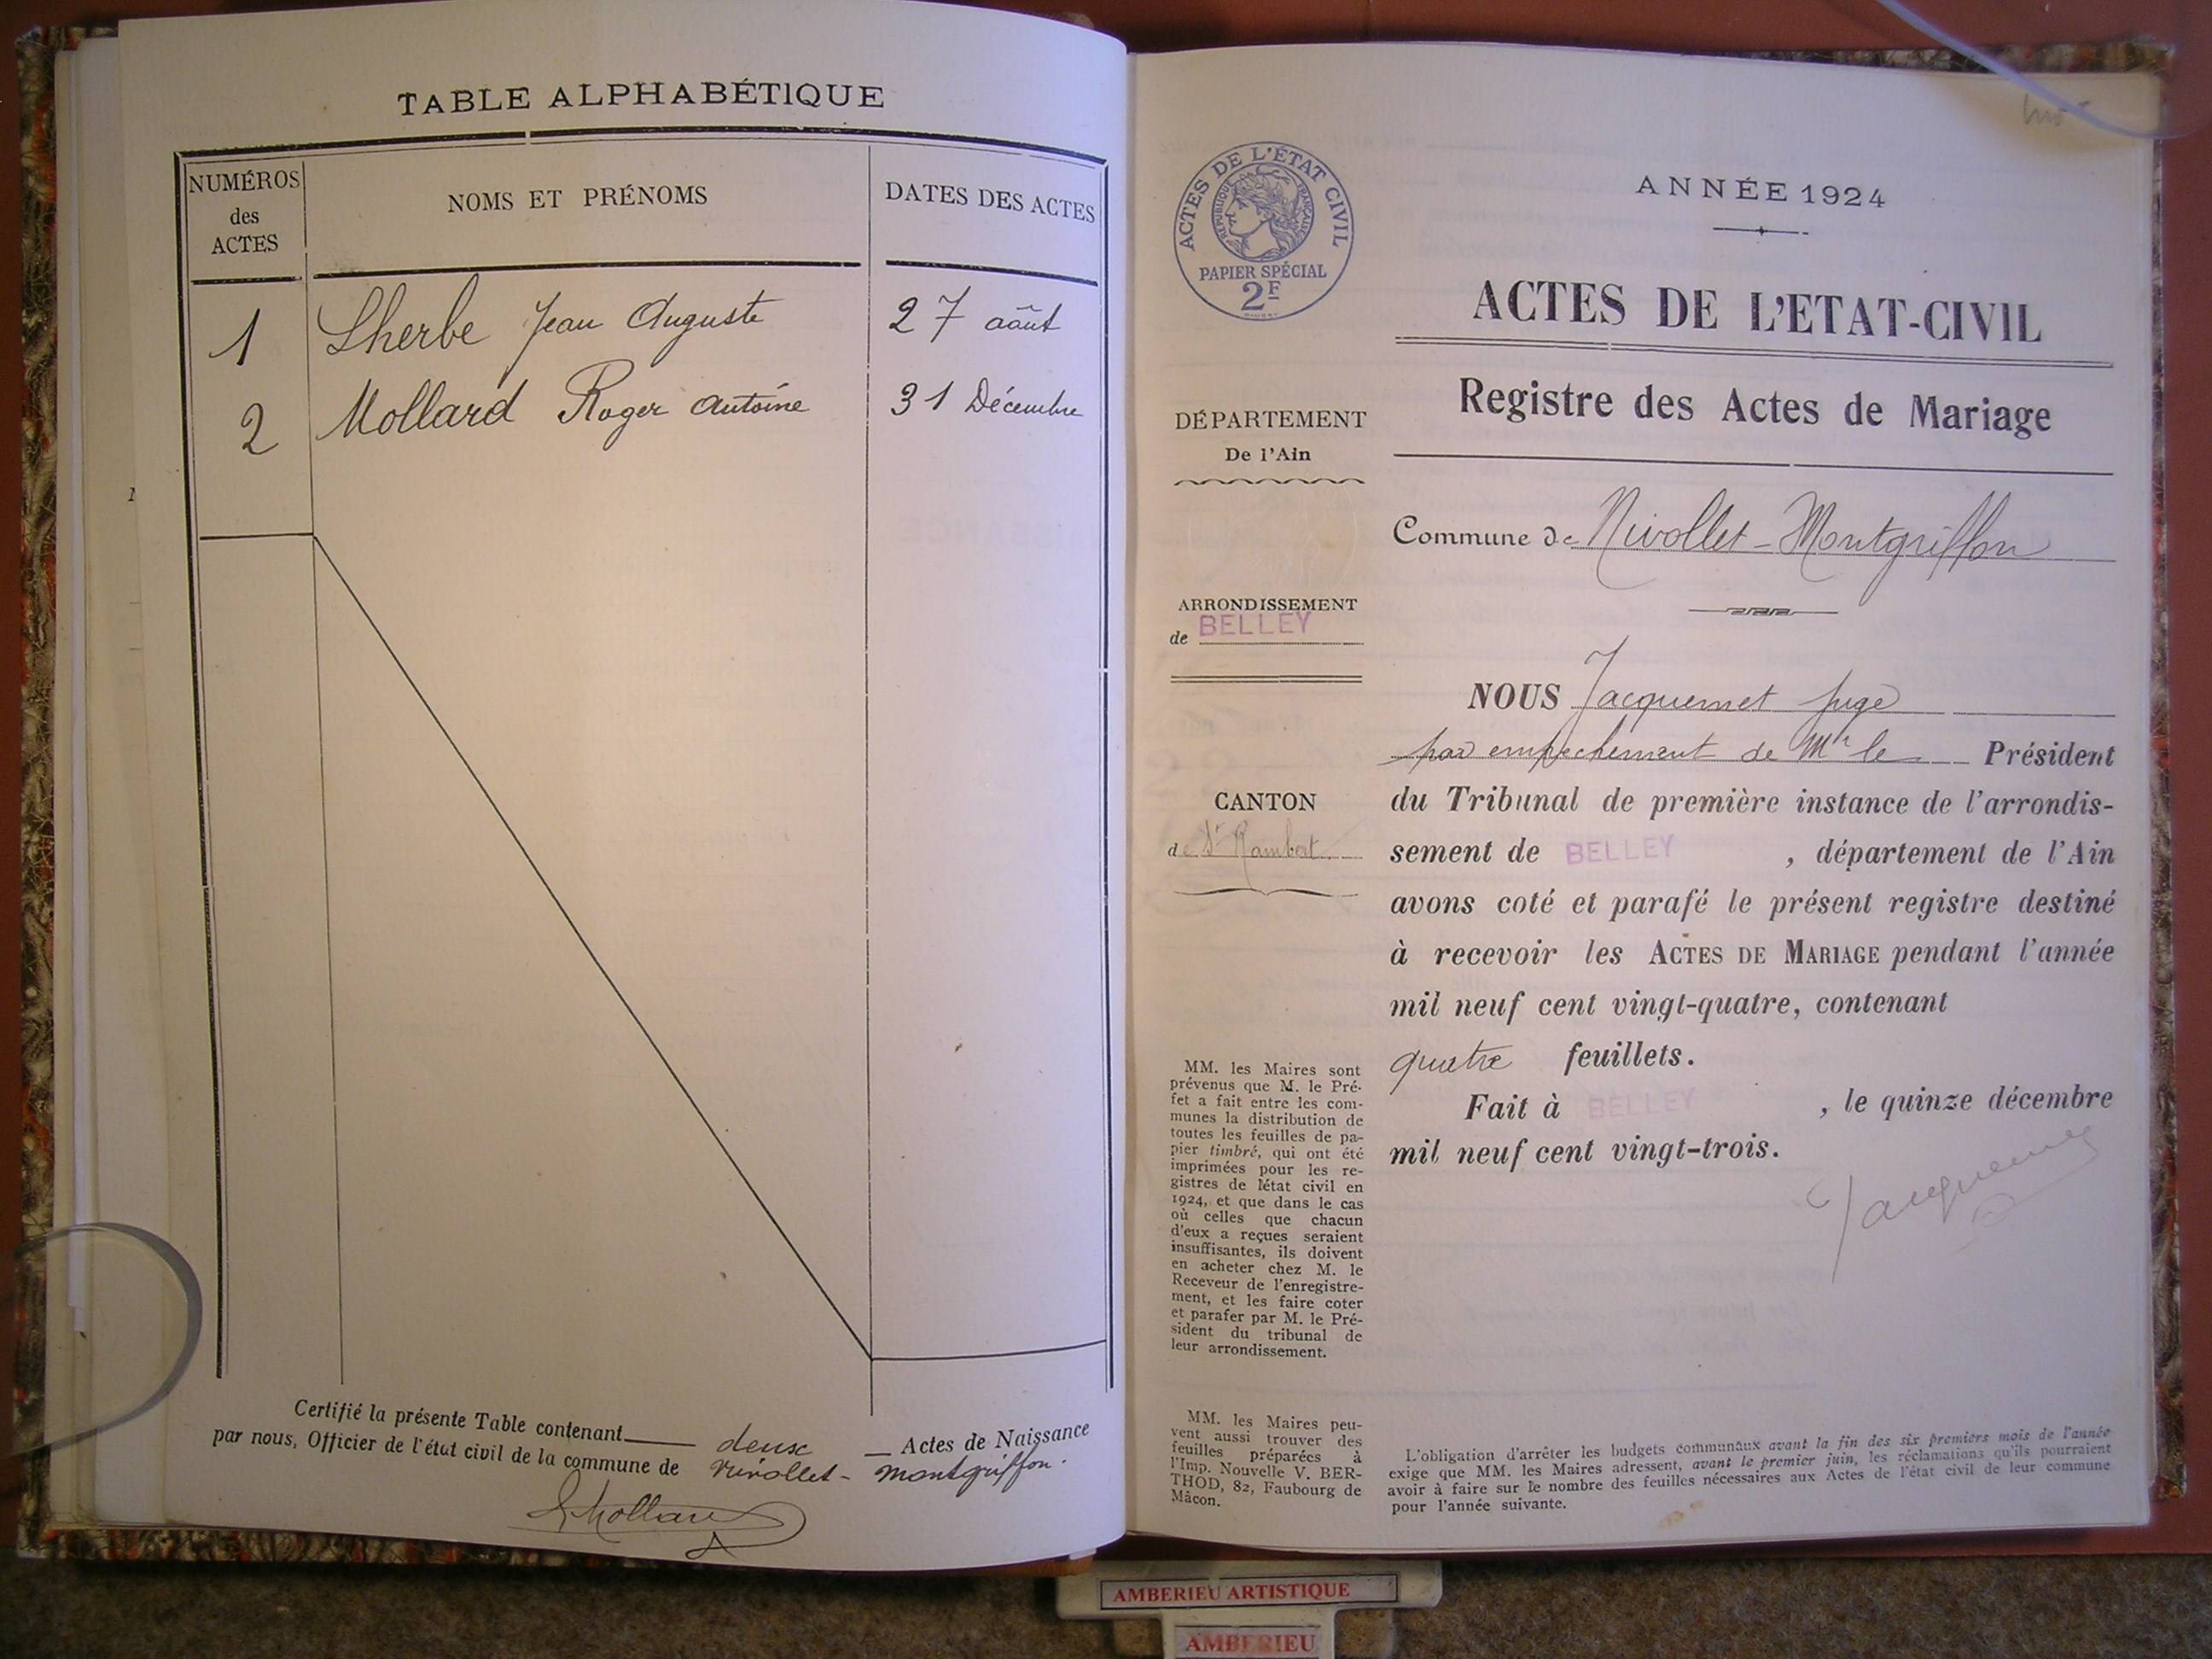 TABLE ALPHABÉTIQUE
NUMÉROS
des
ACTES
NOMS ET PRÉNOMS
DATES DES ACTES
1 Lherbe Jean Auguste 27 août
2 Mollard Roger Antoine 31 Décembre
Certifié la présente Table contenant deux Actes de Naissance
par nous, Officier de l'état civil de la commune de nivollet-montgriffon.
Mollard
ACTES DE L'ÉTAT CIVIL
RÉPUBLIQUE FRANÇAISE
PAPIER SPÉCIAL
2F
ANNÉE 1924
ACTES DE L'ETAT-CIVIL
Registre des Actes de Mariage
DÉPARTEMENT
De l'Ain
Commune de Nivollet-Montgriffon
ARRONDISSEMENT
de BELLEY
CANTON
de St Rambert
NOUS Jacquemet juge
par empechement de Mr le Président
du Tribunal de première instance de l'arrondis-
sement de BELLEY, département de l'Ain
avons coté et parafé le présent registre destiné
à recevoir les ACTES DE MARIAGE pendant l'année
mil neuf cent vingt-quatre, contenant
quatre feuillets.
Fait à BELLEY, le quinze décembre
mil neuf cent vingt-trois.
Jacquemet
MM. les Maires sont
prévenus que M. le Pré-
fet a fait entre les com-
munes la distribution de
toutes les feuilles de pa-
pier timbré, qui ont été
imprimées pour les re-
gistres de l'état civil en
1924, et que dans le cas
où celles que chacun
d'eux a reçues seraient
insuffisantes, ils doivent
en acheter chez M. le
Receveur de l'enregistre-
ment, et les faire coter
et parafer par M. le Pré-
sident du tribunal de
leur arrondissement.
MM. les Maires peu-
vent aussi trouver des
feuilles préparées à
l'Imp. Nouvelle V. BER-
THOD, 82, Faubourg de
Mâcon.
L'obligation d'arrêter les budgets communaux avant la fin des six premiers mois de l'année
exige que MM. les Maires adressent, avant le premier juin, les réclamations qu'ils pourraient
avoir à faire sur le nombre des feuilles nécessaires aux Actes de l'état civil de leur commune
pour l'année suivante.
AMBERIEU ARTISTIQUE
AMBERIEU